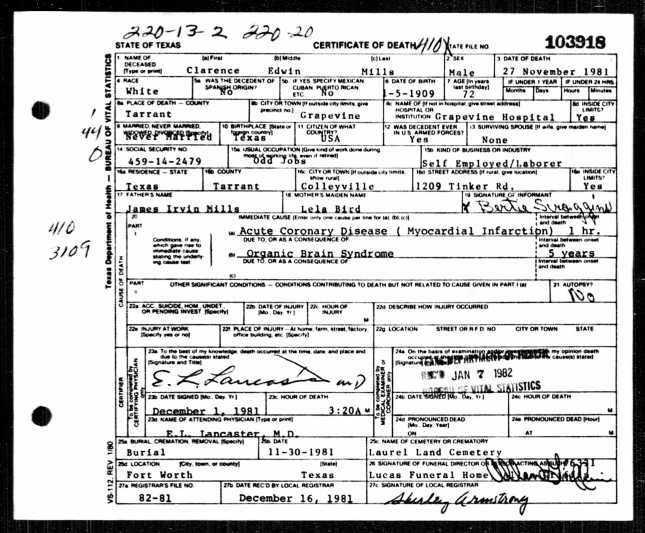 220-13-2 220-20
STATE OF TEXAS CERTIFICATE OF DEATH 410 STATE FILE NO. 103918
1 NAME OF DECEASED (Type or print) (a) First (b) Middle (c) Last 2 SEX 3 DATE OF DEATH
Clarence Edwin Mills Male 27 November 1981
4 RACE 5a WAS THE DECEDENT OF SPANISH ORIGIN? 5b IF YES SPECIFY MEXICAN CUBAN PUERTO RICAN ETC 6 DATE OF BIRTH 7 AGE (In years last birthday) IF UNDER 1 YEAR IF UNDER 24 HRS
Months Days Hours Minutes
White No No 1-5-1909 72
8a PLACE OF DEATH — COUNTY 8b CITY OR TOWN (If outside city limits, give precinct no.) 8c NAME OF (If not in hospital, give street address) HOSPITAL OR INSTITUTION 8d INSIDE CITY LIMITS?
Tarrant Grapevine Grapevine Hospital Yes
9 MARRIED, NEVER MARRIED, WIDOWED, DIVORCED (Specify) 10 BIRTHPLACE (State or foreign country) 11 CITIZEN OF WHAT COUNTRY? 12 WAS DECEDENT EVER IN U.S. ARMED FORCES? 13 SURVIVING SPOUSE (If wife, give maiden name)
Never Married Texas USA Yes None
14 SOCIAL SECURITY NO. 15a USUAL OCCUPATION (Give kind of work done during most of working life, even if retired) 15b KIND OF BUSINESS OR INDUSTRY
459-14-2479 Odd Jobs Self Employed/Laborer
16a RESIDENCE — STATE 16b COUNTY 16c CITY OR TOWN (If outside city limits, show rural) 16d STREET ADDRESS (If rural, give location) 16e INSIDE CITY LIMITS?
Texas Tarrant Colleyville 1209 Tinker Rd. Yes
17 FATHER'S NAME 18 MOTHER'S MAIDEN NAME 19 SIGNATURE OF INFORMANT
James Irvin Mills Lela Bird X Bertie Scroggins
20 IMMEDIATE CAUSE (Enter only one cause per line for (a), (b), (c)) Interval between onset and death
PART I
(a) Acute Coronary Disease ( Myocardial Infarction) 1 hr.
Conditions, if any, which gave rise to immediate cause stating the underlying cause last
DUE TO, OR AS A CONSEQUENCE OF Interval between onset and death
(b) Organic Brain Syndrome 5 years
DUE TO, OR AS A CONSEQUENCE OF Interval between onset and death
(c)
PART II OTHER SIGNIFICANT CONDITIONS — CONDITIONS CONTRIBUTING TO DEATH BUT NOT RELATED TO CAUSE GIVEN IN PART I (a) 21 AUTOPSY?
No
22a ACC. SUICIDE, HOM. UNDET. OR PENDING INVEST (Specify) 22b DATE OF INJURY (Mo. Day. Yr.) 22c HOUR OF INJURY M 22d DESCRIBE HOW INJURY OCCURRED
22e INJURY AT WORK (Specify yes or no) 22f PLACE OF INJURY — At home, farm, street, factory, office building, etc. (Specify) 22g LOCATION STREET OR R.F.D. NO. CITY OR TOWN STATE
23a To the best of my knowledge, death occurred at the time, date and place and due to the cause(s) stated (Signature and Title)
E. L. Lancaster MD
24a On the basis of examination my opinion death
REC'D JAN 7 1982
BUREAU OF VITAL STATISTICS
23b DATE SIGNED (Mo. Day. Yr.) 23c HOUR OF DEATH 24b DATE SIGNED (Mo., Day, Yr.) 24c HOUR OF DEATH
December 1, 1981 3:20A M M
23d NAME OF ATTENDING PHYSICIAN (Type or print) 24d PRONOUNCED DEAD (Mo. Day. Year) 24e PRONOUNCED DEAD (Hour)
E.L. Lancaster, M.D. ON AT M
25a BURIAL, CREMATION, REMOVAL (Specify) 25b DATE 25c NAME OF CEMETERY OR CREMATORY
Burial 11-30-1981 Laurel Land Cemetery
25d LOCATION (City, town, or county) (State) 26 SIGNATURE OF FUNERAL DIRECTOR OR PERSON ACTING AS SUCH
Fort Worth Texas Lucas Funeral Home
27a REGISTRAR'S FILE NO. 27b DATE REC'D BY LOCAL REGISTRAR 27c SIGNATURE OF LOCAL REGISTRAR
82-81 December 16, 1981 Shirley Armstrong
Texas Department of Health — BUREAU OF VITAL STATISTICS
VS-112, REV. 1/80
CAUSE OF DEATH
CERTIFIER
To be completed by CERTIFYING PHYSICIAN only
1
44
0
410
3109